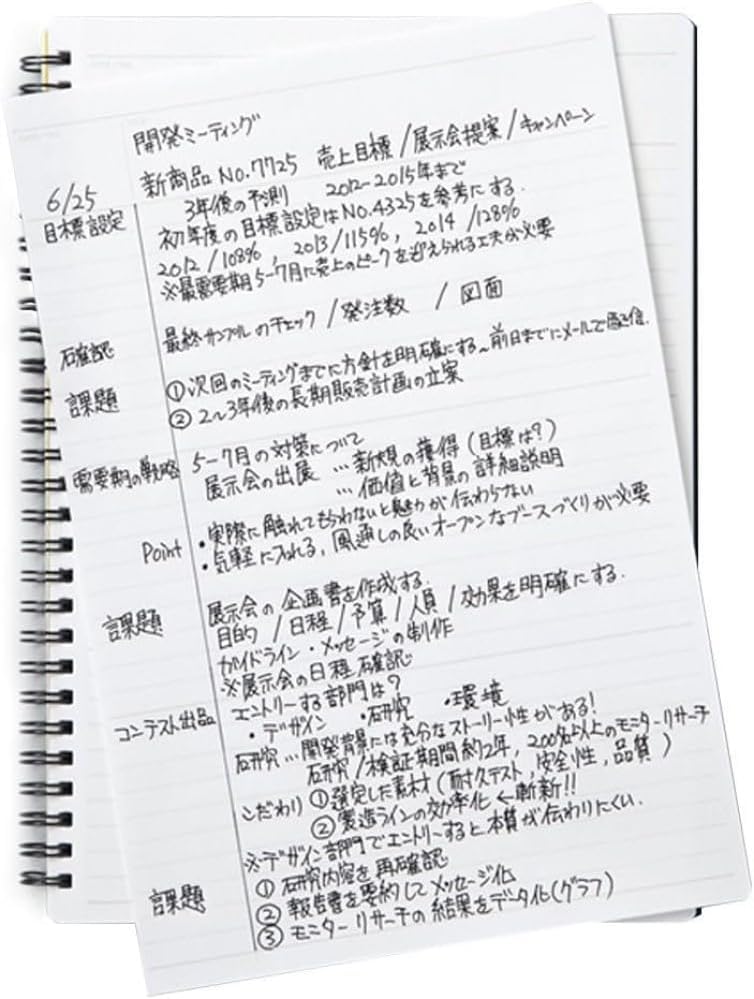 開発ミーティング
6/25 新商品 No.7725 売上目標/展示会提案/キャンペーン
目標設定 3年後の予測 2012-2015年まで
初年度の目標設定はNo.4325を参考にする.
2012/108%, 2013/115%, 2014/128%
※最需要期5-7月に売上のピークを迎えられる工夫が必要
確認 最終サンプルのチェック/発注数 /図面
課題 ①次回のミーティングまでに方針を明確にする~前日までにメールで配信.
②2~3年後の長期販売計画の立案
需要期の戦略 5-7月の対策について
展示会の出展 …新規の獲得(目標は?)
…価値と背景の詳細説明
Point ・実際に触れてもらわないと魅力が伝わらない
・気軽に入れる, 風通しの良いオープンなブースづくりが必要
課題 展示会の企画書を作成する.
目的/日程/予算/人員/効果を明確にする.
ガイドライン・メッセージの制作
※展示会の日程確認
コンテスト出品 エントリーする部門は?
・デザイン ・研究 ・環境
研究…開発背景には充分なストーリー性がある!
研究/検証期間約2年, 200名以上のモニターリサーチ
こだわり ①選定した素材(耐久テスト, 安全性, 品質)
②製造ラインの効率化←斬新!!
※デザイン部門でエントリーすると本質が伝わりにくい.
課題 ①研究内容を再確認
②報告書を要約してメッセージ化
③モニターリサーチの結果をデータ化(グラフ)